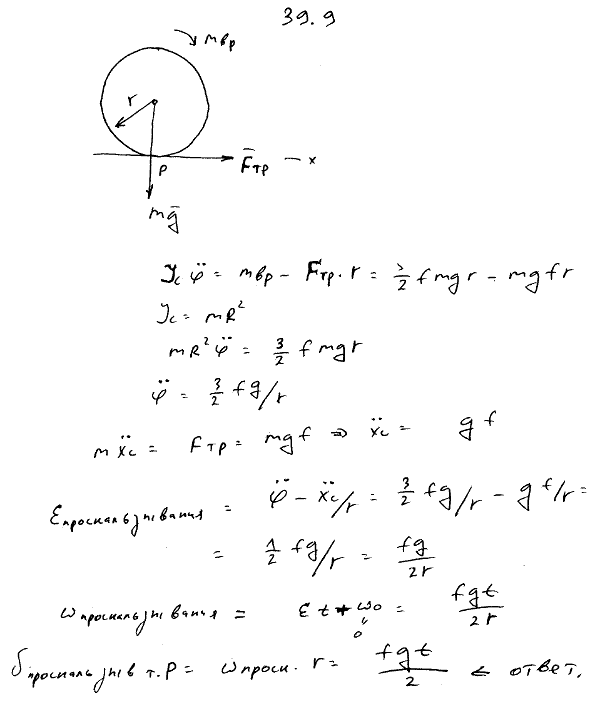 39.9
mвр
r
P
F̄тр — x
mḡ
J_c φ̈ = mвр − Fтр · r = 5/2 f m g r − m g f r
J_c = mR²
mR² φ̈ = 3/2 f m g r
φ̈ = 3/2 fg/r
m ẍ_c = Fтр = m g f ⇒ ẍ_c = g f
ε проскальзывания = φ̈ − ẍ_c/r = 3/2 fg/r − g f/r =
= 1/2 fg/r = fg/2r
ω проскальзывания = ε t + ω₀ = fgt/2r
0
υ проскальзыв т. P = ω проск. r = fgt/2 ← ответ.